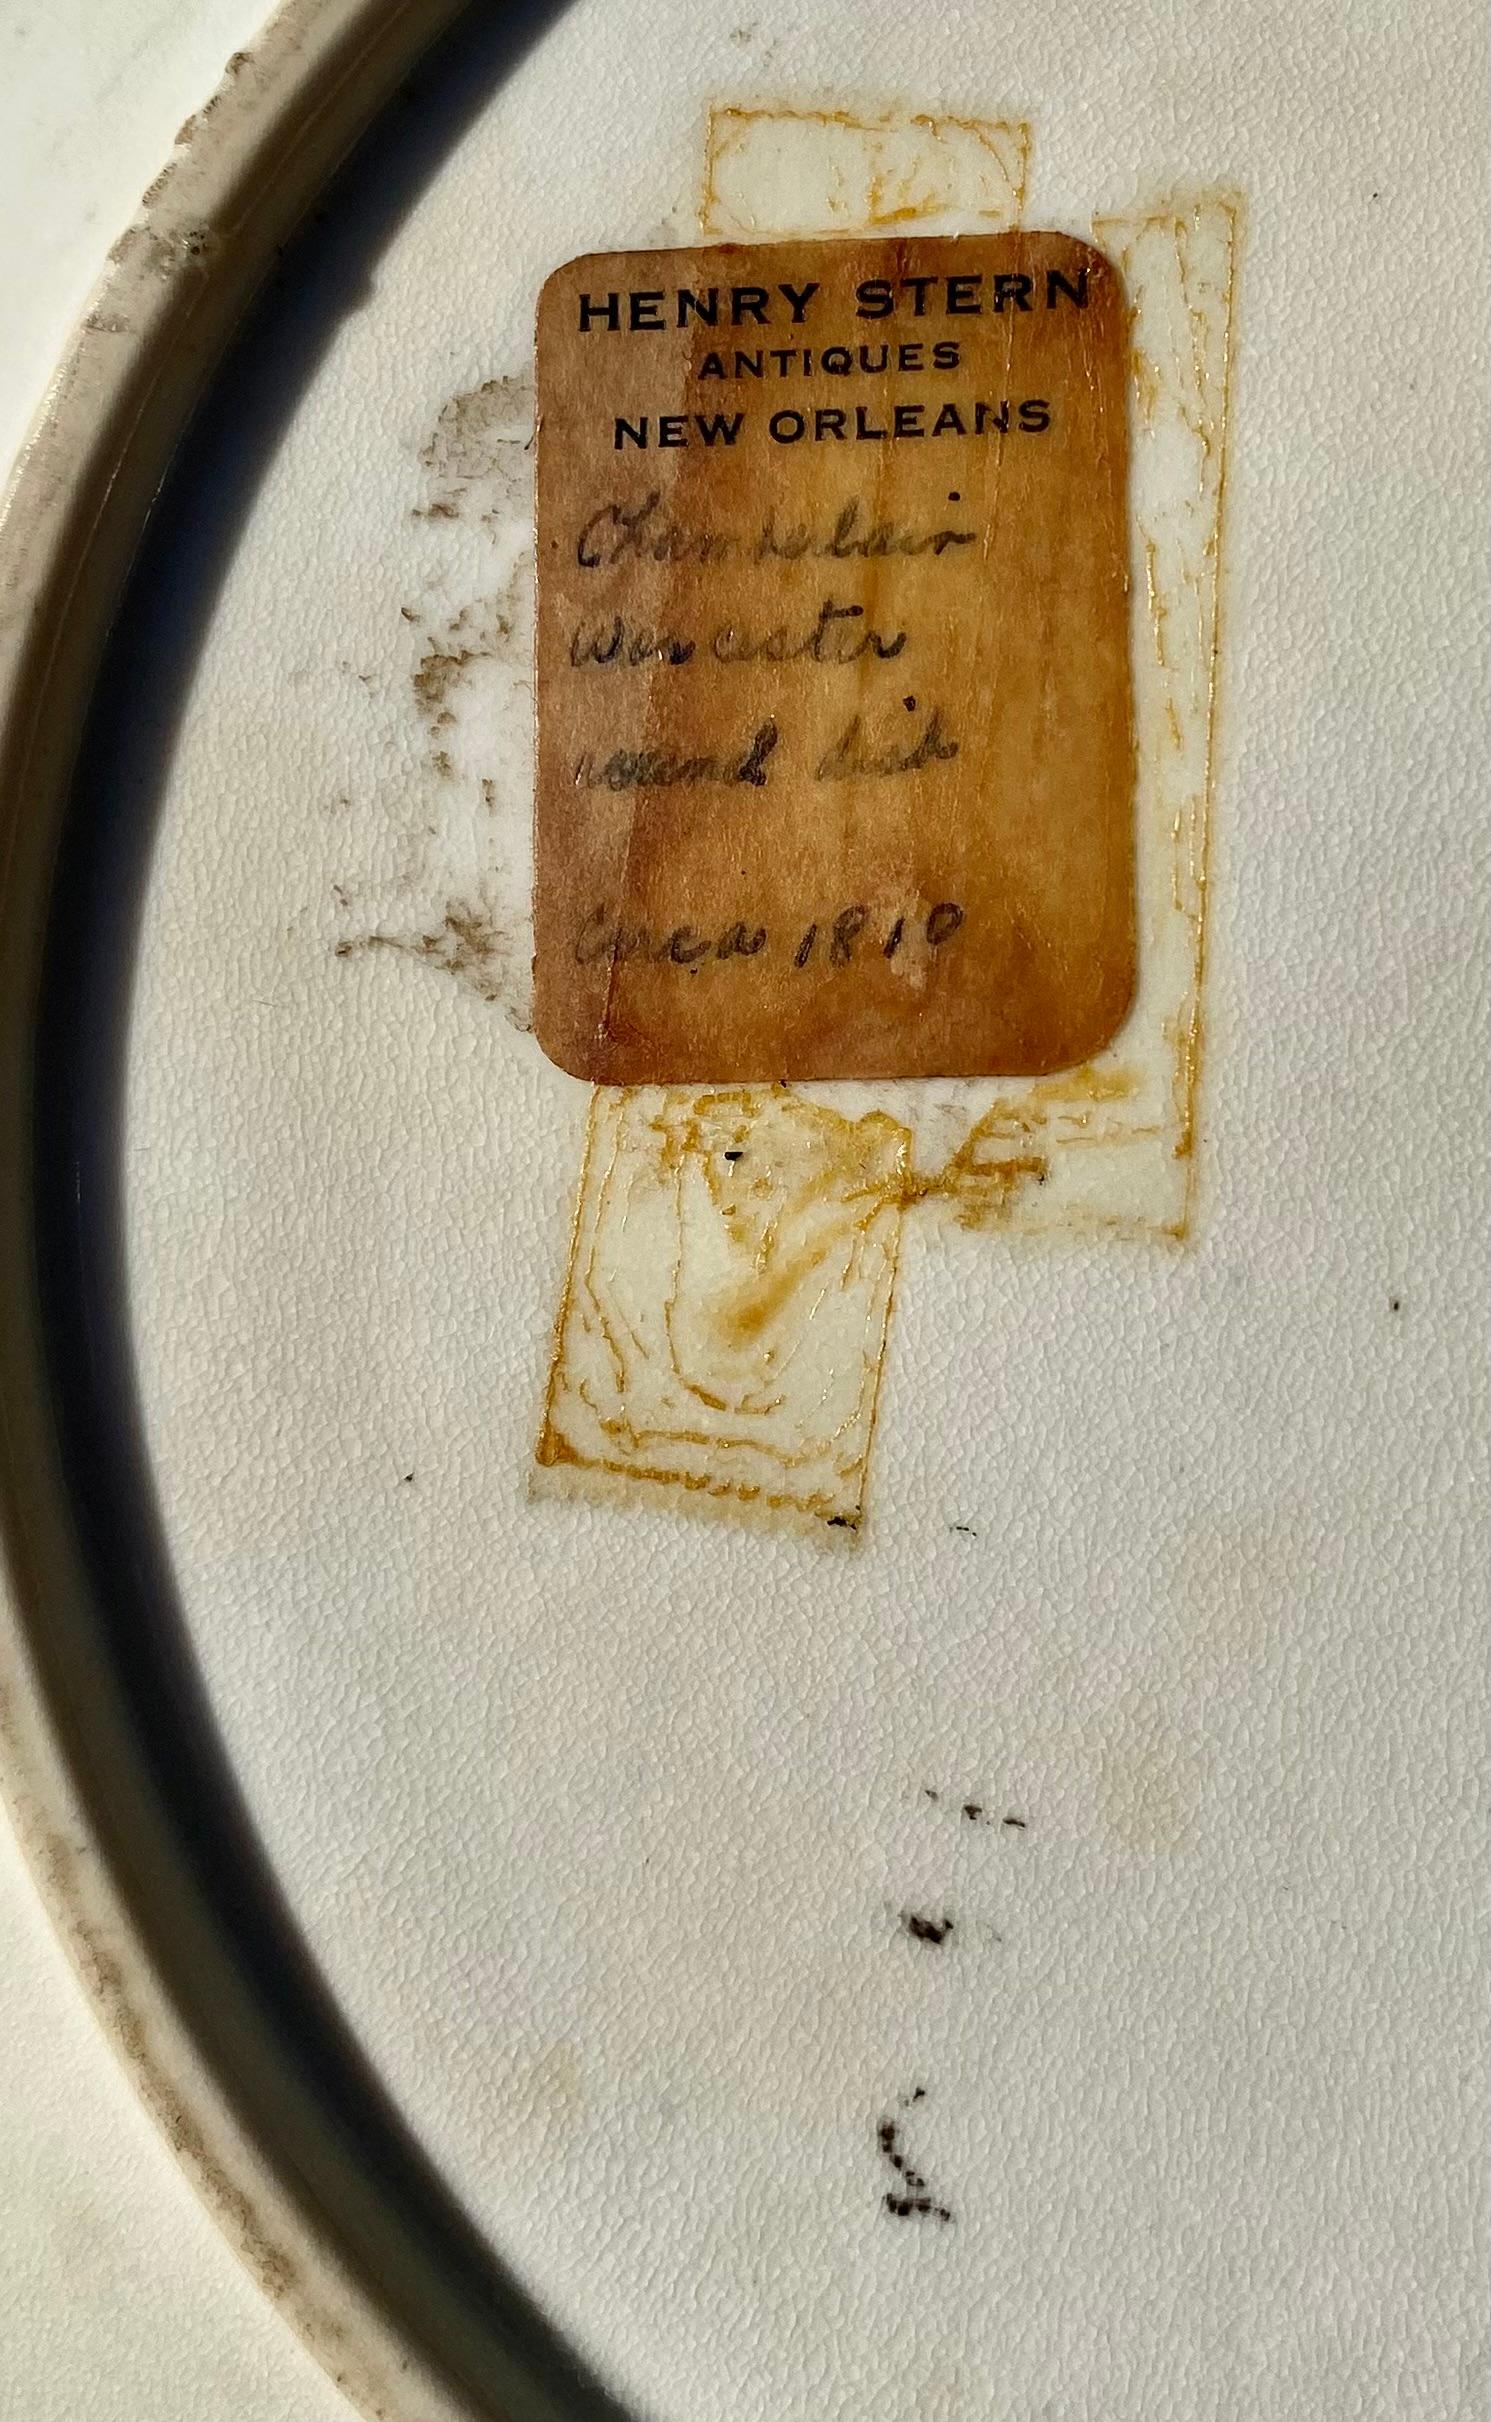 HENRY STERN
ANTIQUES
NEW ORLEANS
Chamberlain
Worcester
round dish
Circa 1810